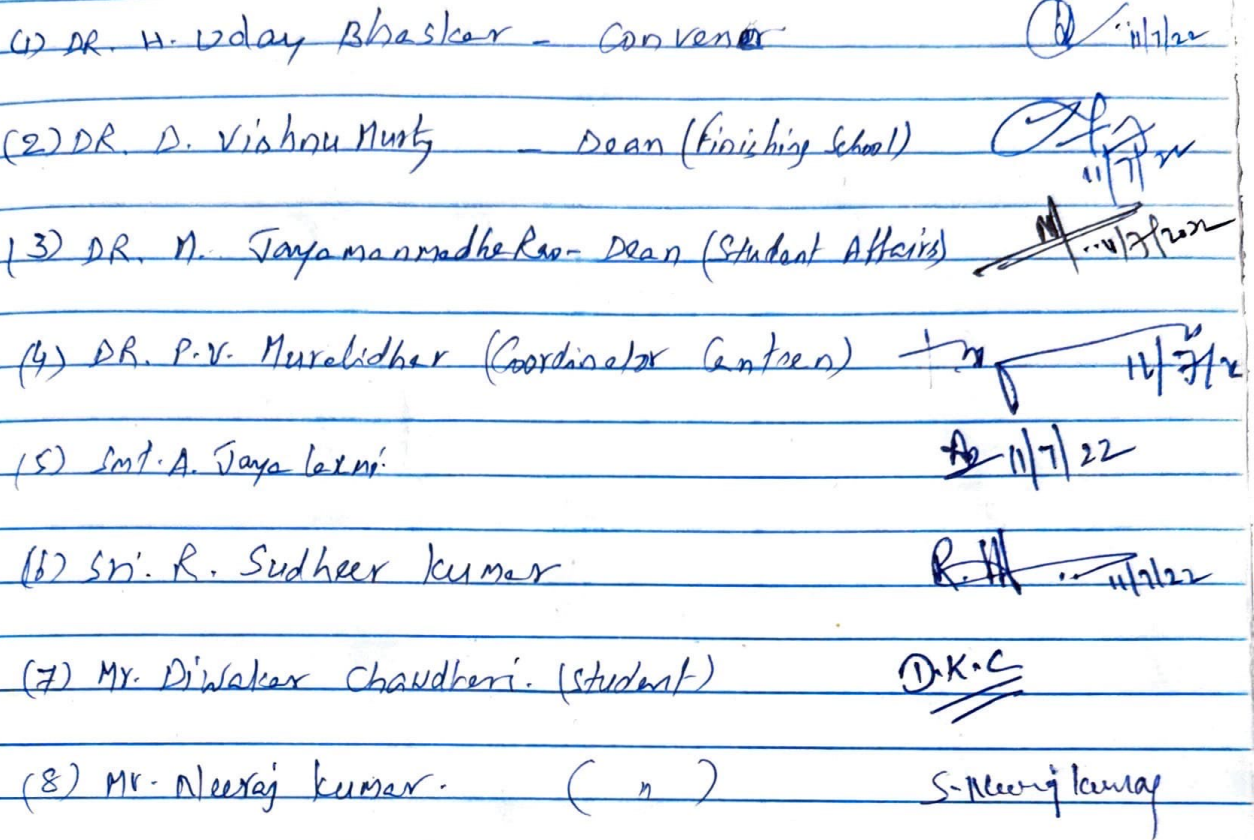 (1) DR. H. Uday Bhasker - Convenor 11/7/22
(2) DR. D. Vishnu Murty - Dean (Finishing School) 11/7/22
(3) DR. M. Jayamanmadha Rao - Dean (Student Affairs) 11/7/2022
(4) DR. P.V. Muralidhar (Coordinator Canteen) 11/7/2
(5) Smt. A. Jaya laxmi. 11/7/22
(6) Sri. R. Sudheer kumar R. 11/7/22
(7) Mr. Diwaker Chaudheri. (student) D.K.C
(8) Mr. Neeraj kumar. ( " ) S. Neeraj kumar